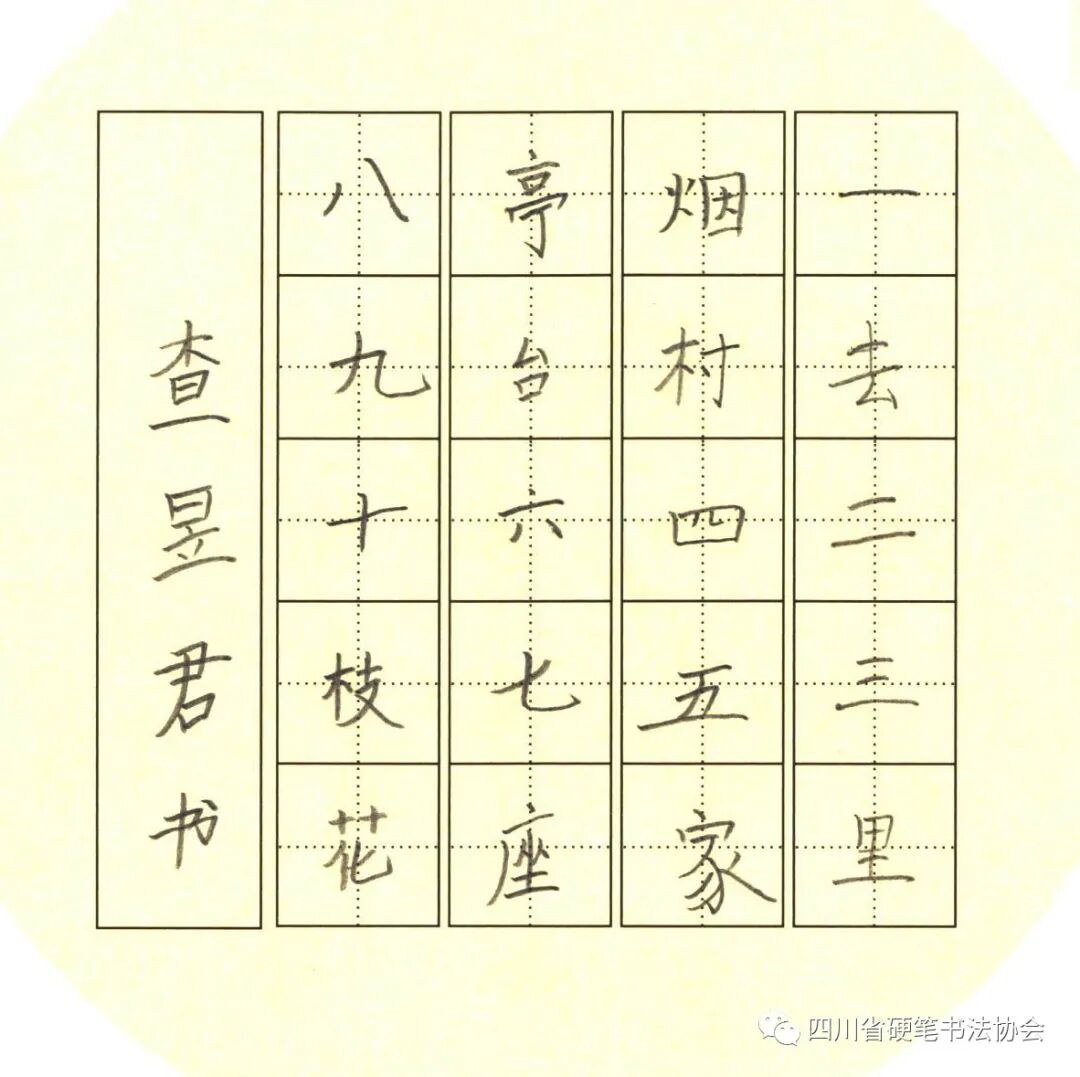 一去二三里
烟村四五家
亭台六七座
八九十枝花
查昱君书
四川省硬笔书法协会